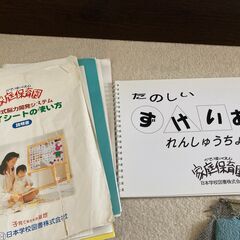 家庭保育園
式能力開発システム
シートの使い方
説明書
子育て支援
日本学校図書株式会社
たのしい
ずけいあ
れんしゅうちょ
家庭保育園
日本学校図書株式会